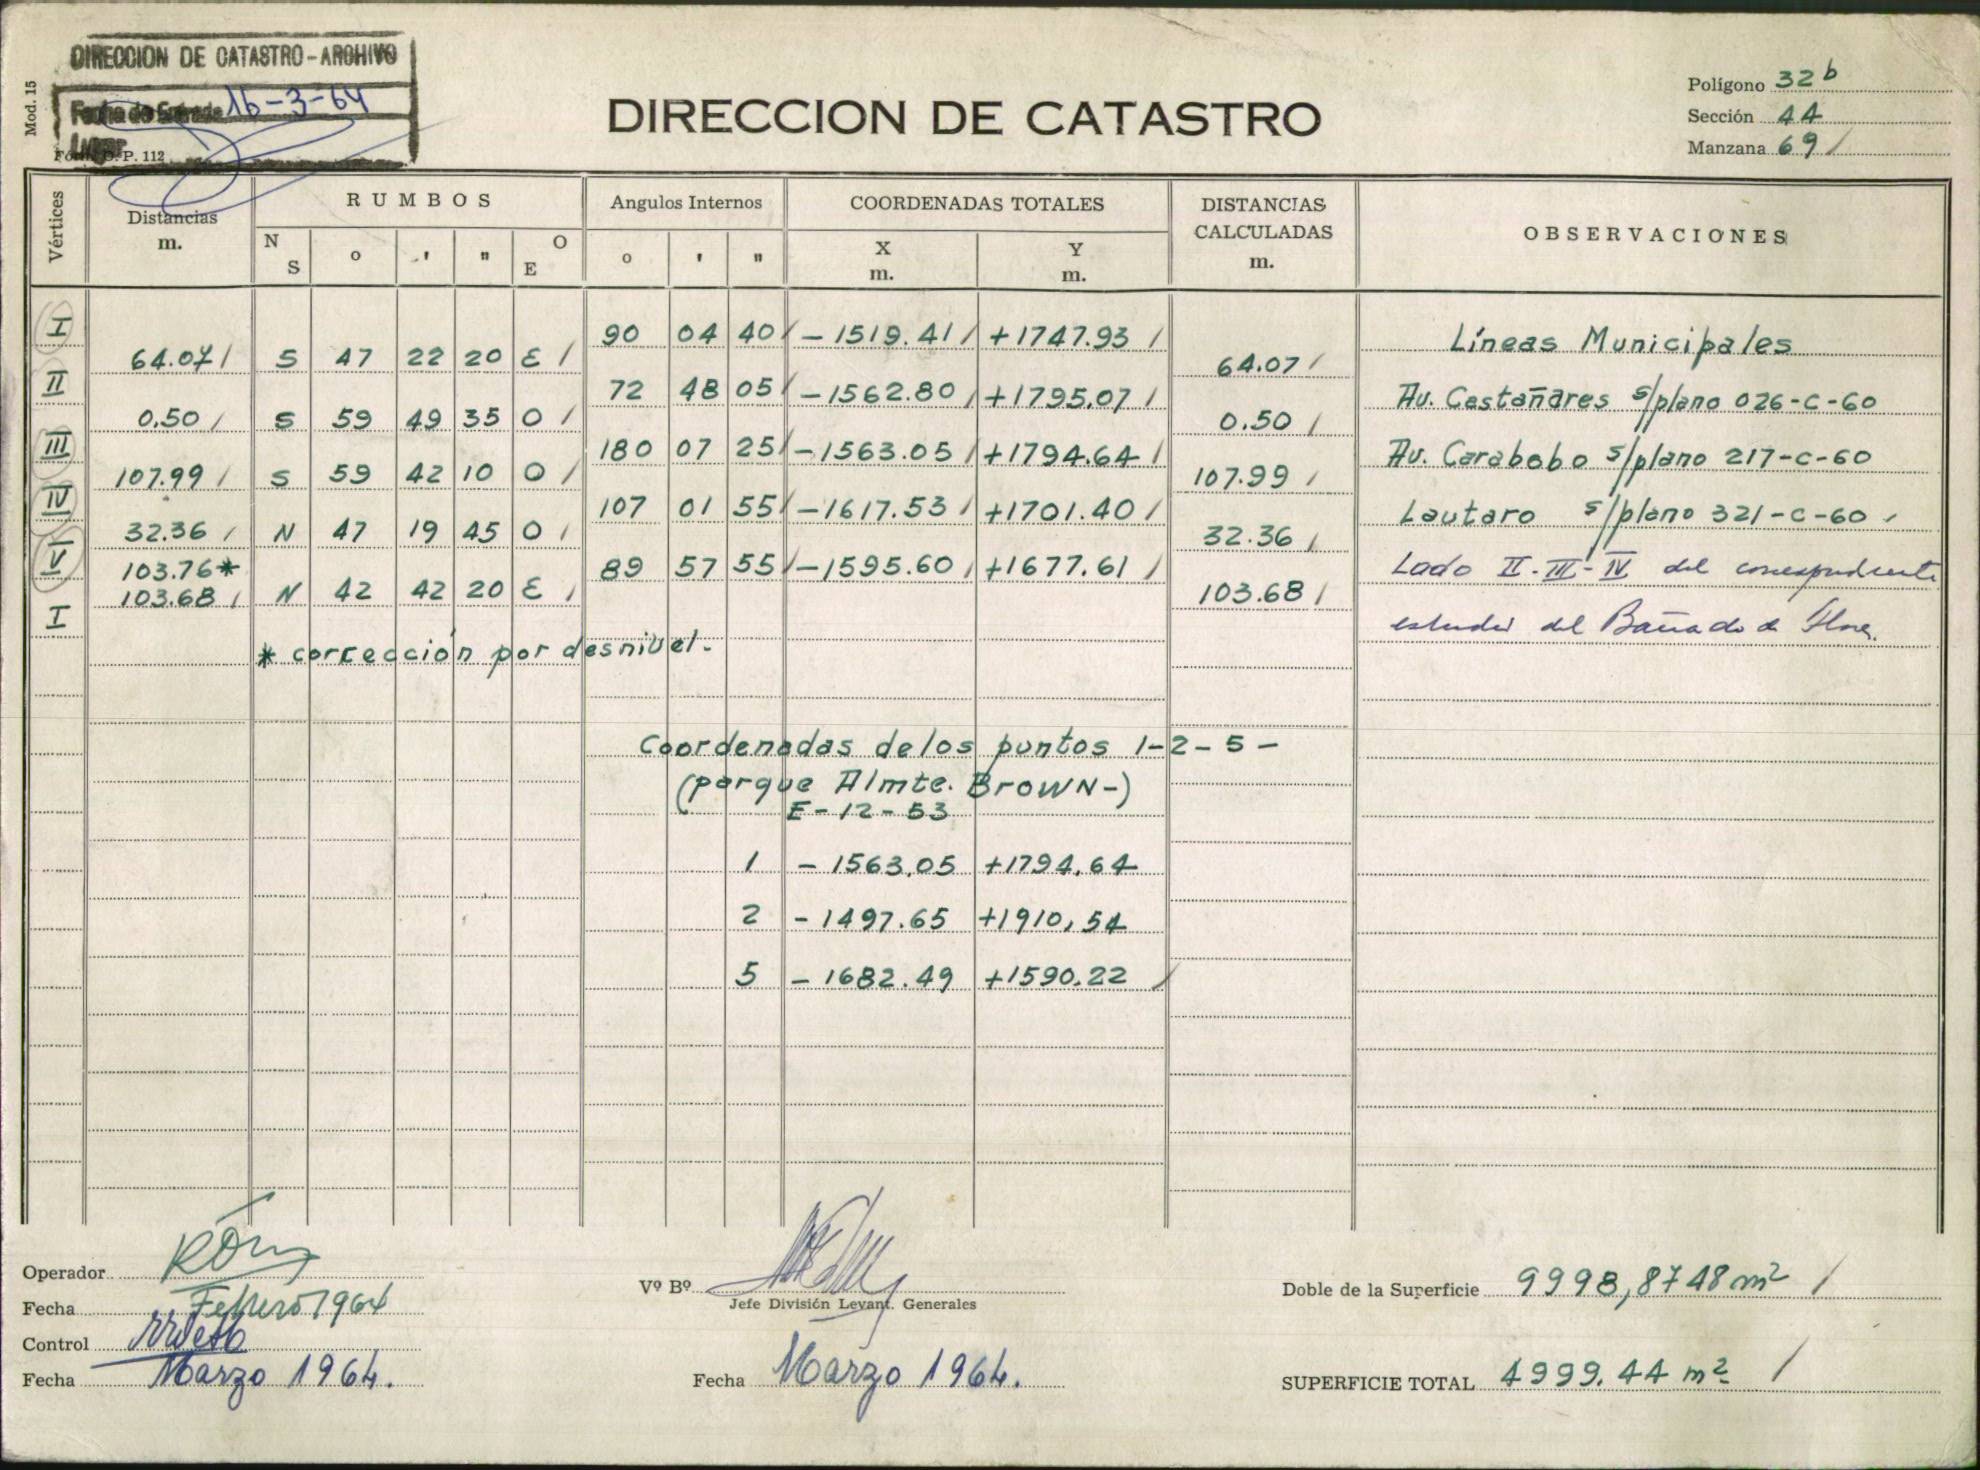 DIRECCION DE CATASTRO - ARCHIVO
Fecha de Entrada 16-3-64
Mod. 15
DIRECCION DE CATASTRO
Polígono 32 b
Sección 44
Manzana 69 /
Vértices
Distancias m.
RUMBOS
N S ° ' " O E
Angulos Internos
° ' "
COORDENADAS TOTALES
X m. Y m.
DISTANCIAS CALCULADAS m.
OBSERVACIONES
I 90 04 40 / - 1519.41 / +1747.93 / Líneas Municipales
64.07 / S 47 22 20 E / 64.07 /
II 72 48 05 / -1562.80 / +1795.07 / Av. Castañares s/plano 026-C-60
0.50 / S 59 49 35 O / 0.50 /
III 180 07 25 / -1563.05 / +1794.64 / Av. Carabobo s/plano 217-C-60
107.99 / S 59 42 10 O / 107.99 /
IV 107 01 55 / -1617.53 / +1701.40 / Lautaro s/plano 321-C-60
32.36 / N 47 19 45 O / 32.36 /
V 103.76* 89 57 55 / -1595.60 / +1677.61 / Lado II-III-IV del correspondiente
103.68 / N 42 42 20 E / 103.68 /
I estudio del Bañado de Flores.
* corrección por desnivel.-
Coordenadas de los puntos 1-2-5-
(parque Almte. BROWN-)
E-12-53
1 - 1563.05 +1794.64
2 - 1497.65 +1910,54
5 - 1682.49 +1590.22 /
Operador
Fecha Febrero 1964
Control
Fecha Marzo 1964.
Vº Bº
Jefe División Levant. Generales
Fecha Marzo 1964.
Doble de la Superficie 9998,8748 m² /
SUPERFICIE TOTAL 4999.44 m² /